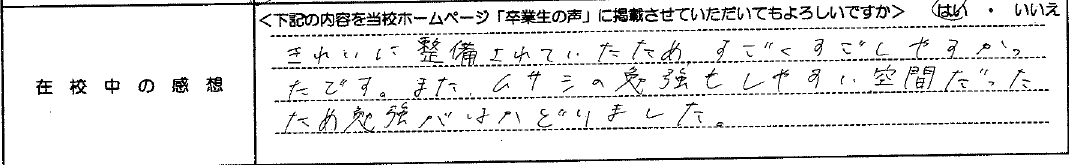 <下記の内容を当校ホームページ「卒業生の声」に掲載させていただいてもよろしいですか> はい ・ いいえ
在校中の感想
きれいに整備されていたため、すごくすごしやすかっ
たです。また、ムサシの勉強もしやすい空間だった
ため勉強がはかどりました。